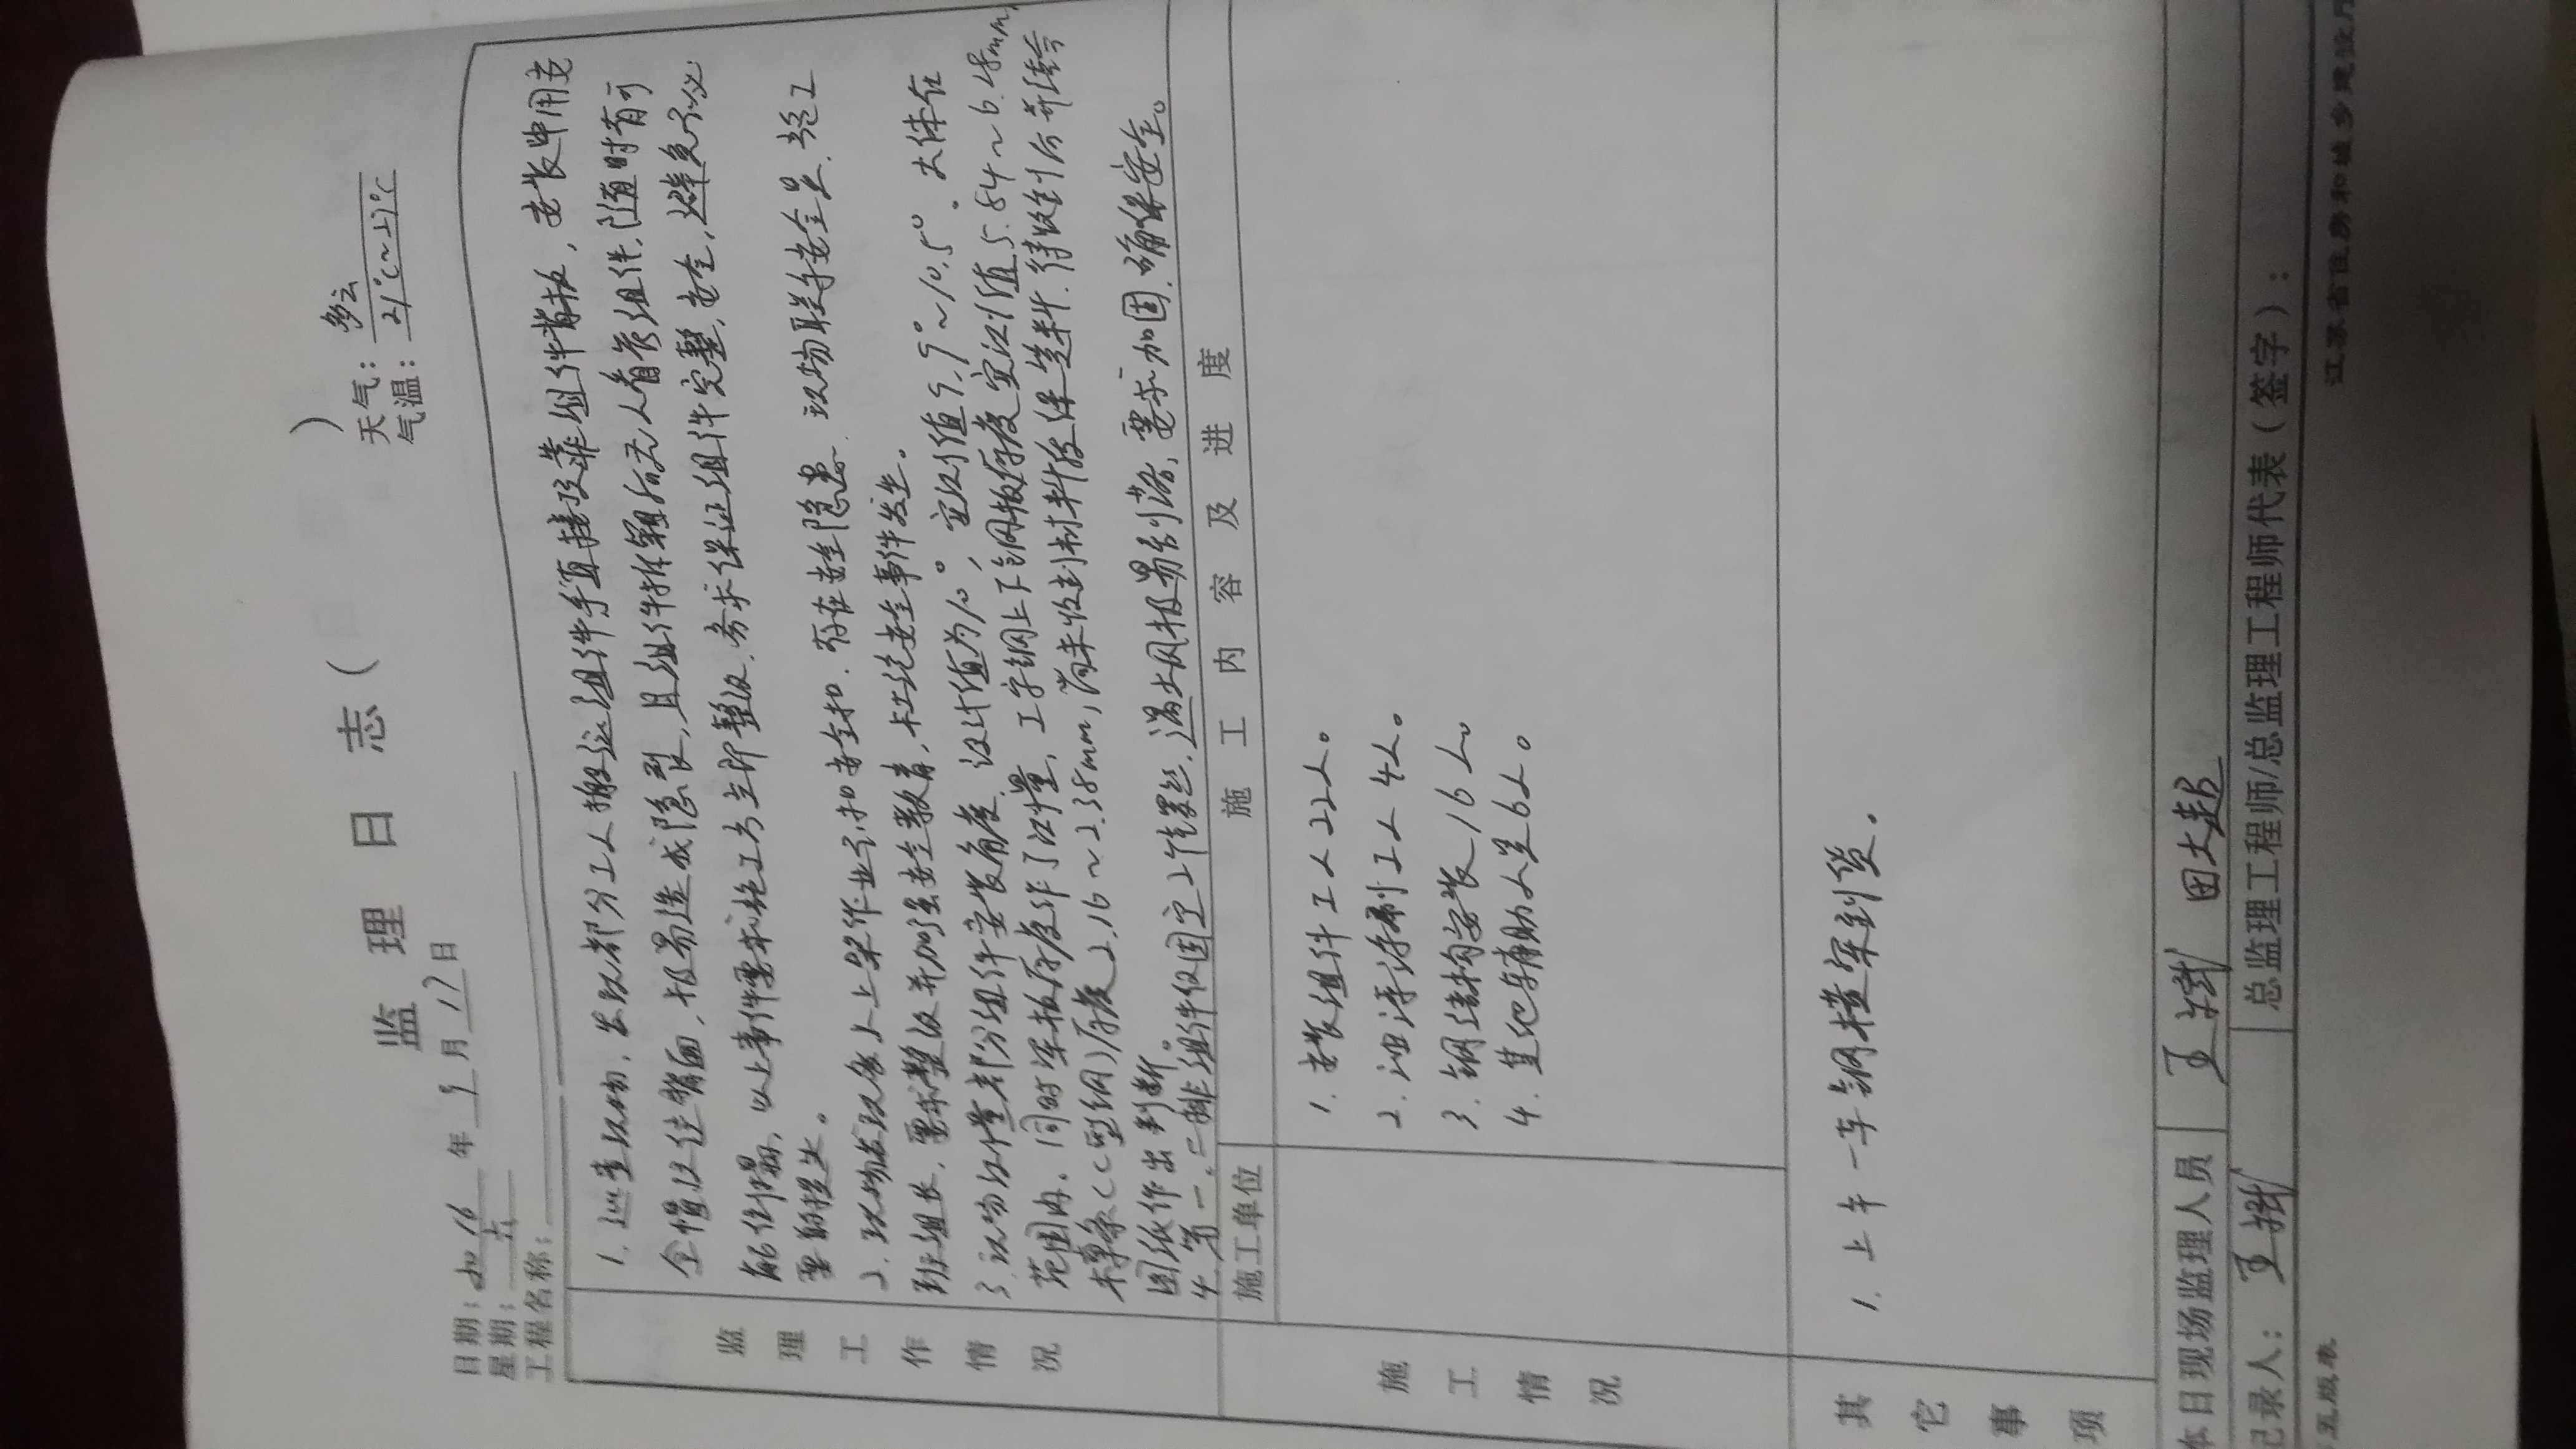 监理日志（ ）
日期：2016年9月17日
天气：多云
星期：六
气温：21℃~27℃
工程名称：
监理工作情况
1. 巡查现场，发现部分工人搬运组件手直接及靠组件背板，安装中用安
全帽仅住背面，极易造成隐裂，且组件拆箱后无人看管组件，随时有可
能倾塌，以上事件要求施工方立即整改，务求保证组件完整，安全，避免不必
要的损失。
2. 现场发现多人上架作业不扣安全扣，存在安全隐患，现场联系安全员、施工
班组长，要求整改并加强安全教育，杜绝安全事件发生。
3. 现场测量部分组件安装角度，设计值为10°，实测值9.9°~10.5°，大体在
范围内。同时将板厚度作了测量，工字钢上下钢板厚度实测值5.84~6.48mm，
檩条（C型钢）厚度2.16~2.38mm，尚未收到材料报保资料，待收到后并结合
图纸作出判断。
4. 第一、二排组件仅固定上部螺丝，遇大风极易刮落，要求加固，确保安全。
施工单位
施工内容及进度
施工情况
1. 安装组件工人22人。
2. 油漆涂刷工人4人。
3. 钢结构安装16人。
4. 其他辅助人员6人。
其它事项
1. 上午一车钢檩条到货。
本日现场监理人员
田大超
记录人：
总监理工程师/总监理工程师代表（签字）：
五版表
江苏省住房和城乡建设厅